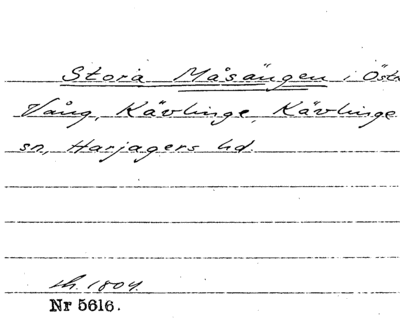 Stora Måsängen i Östr
Vång, Kävlinge, Kävlinge
sn, Harjagers hd.
1804.
Nr 5616.